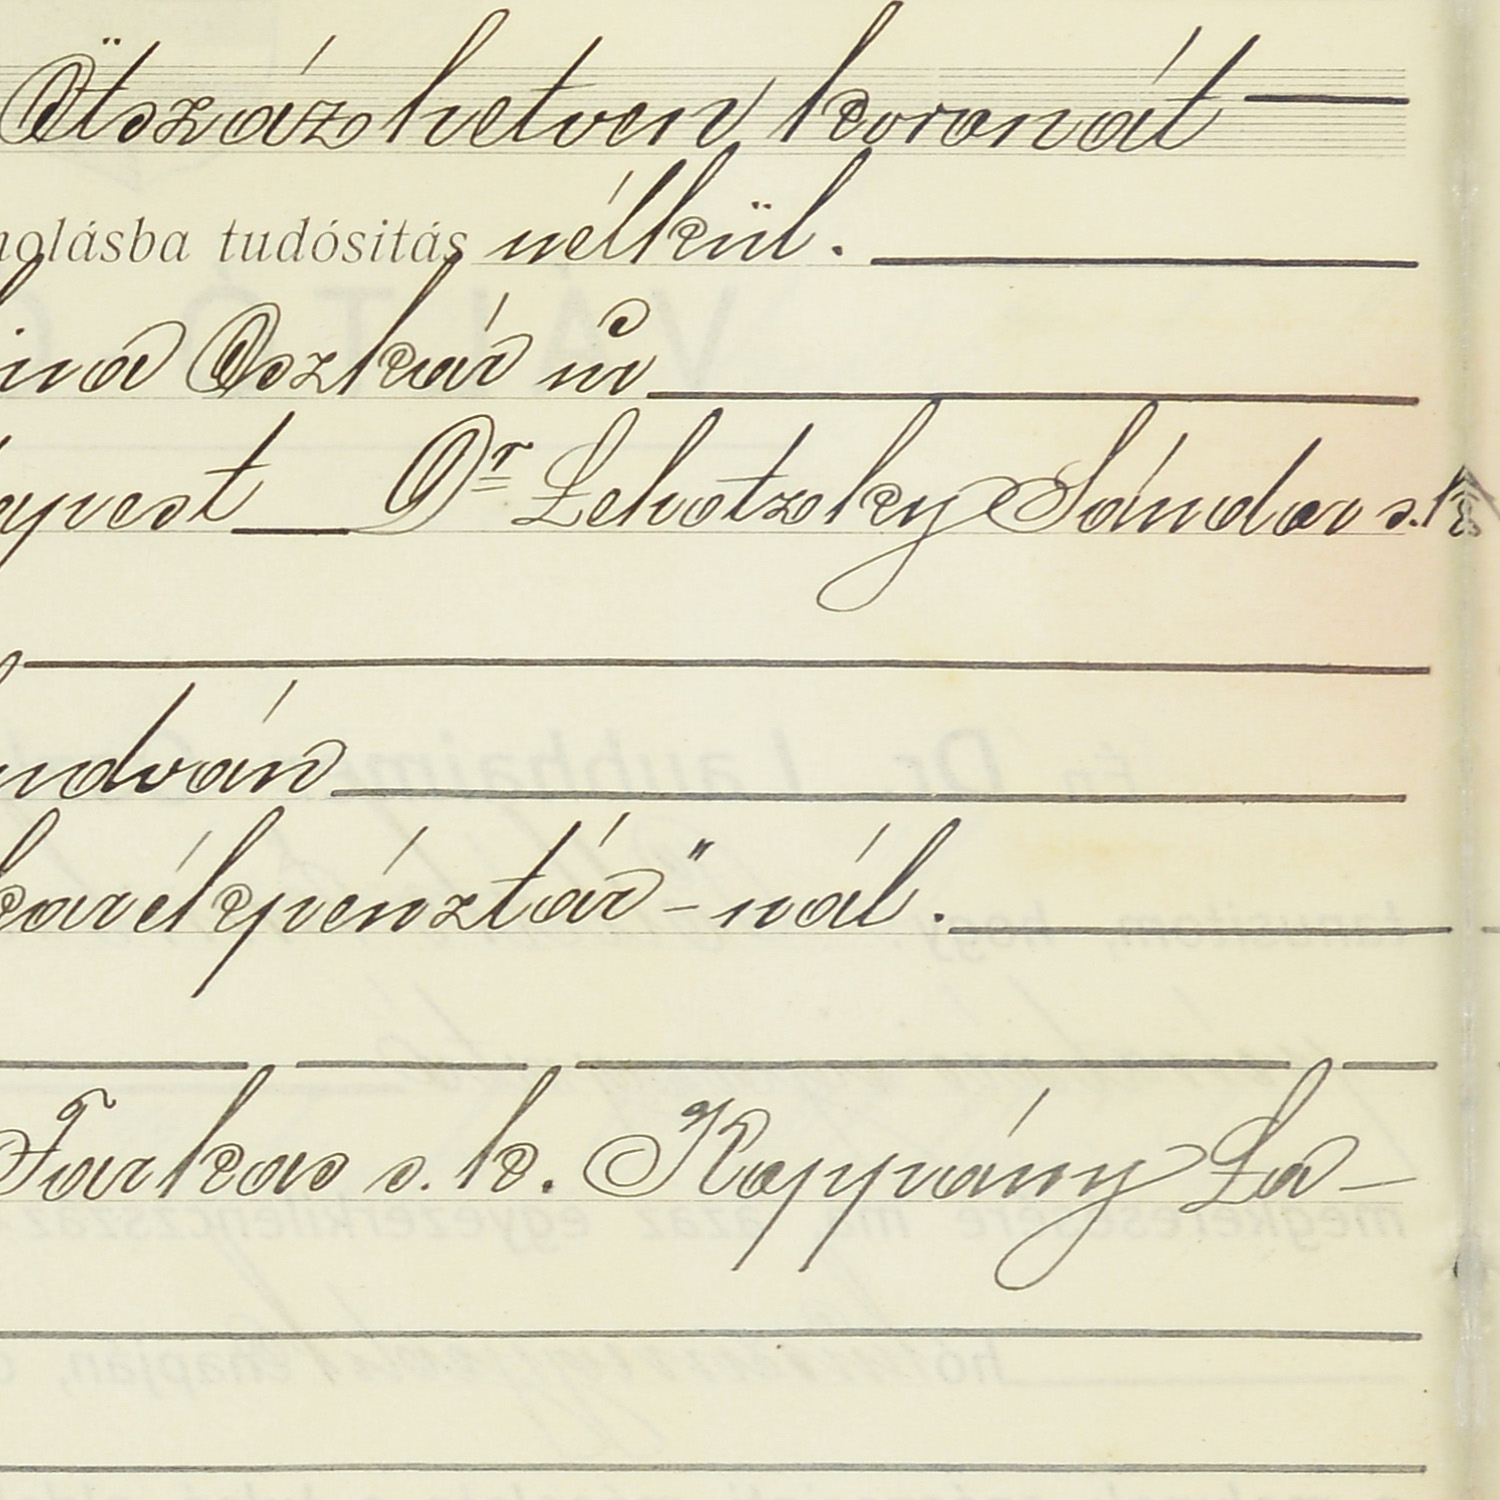 Ötszázhetven koronát
molásba tudósitás nélkül.
ina Oszkár úr
apest Dr Lehotzky Sándor s.k.
ndván
karékpénztár"-nál.
Farkas s.k. Koppány La-